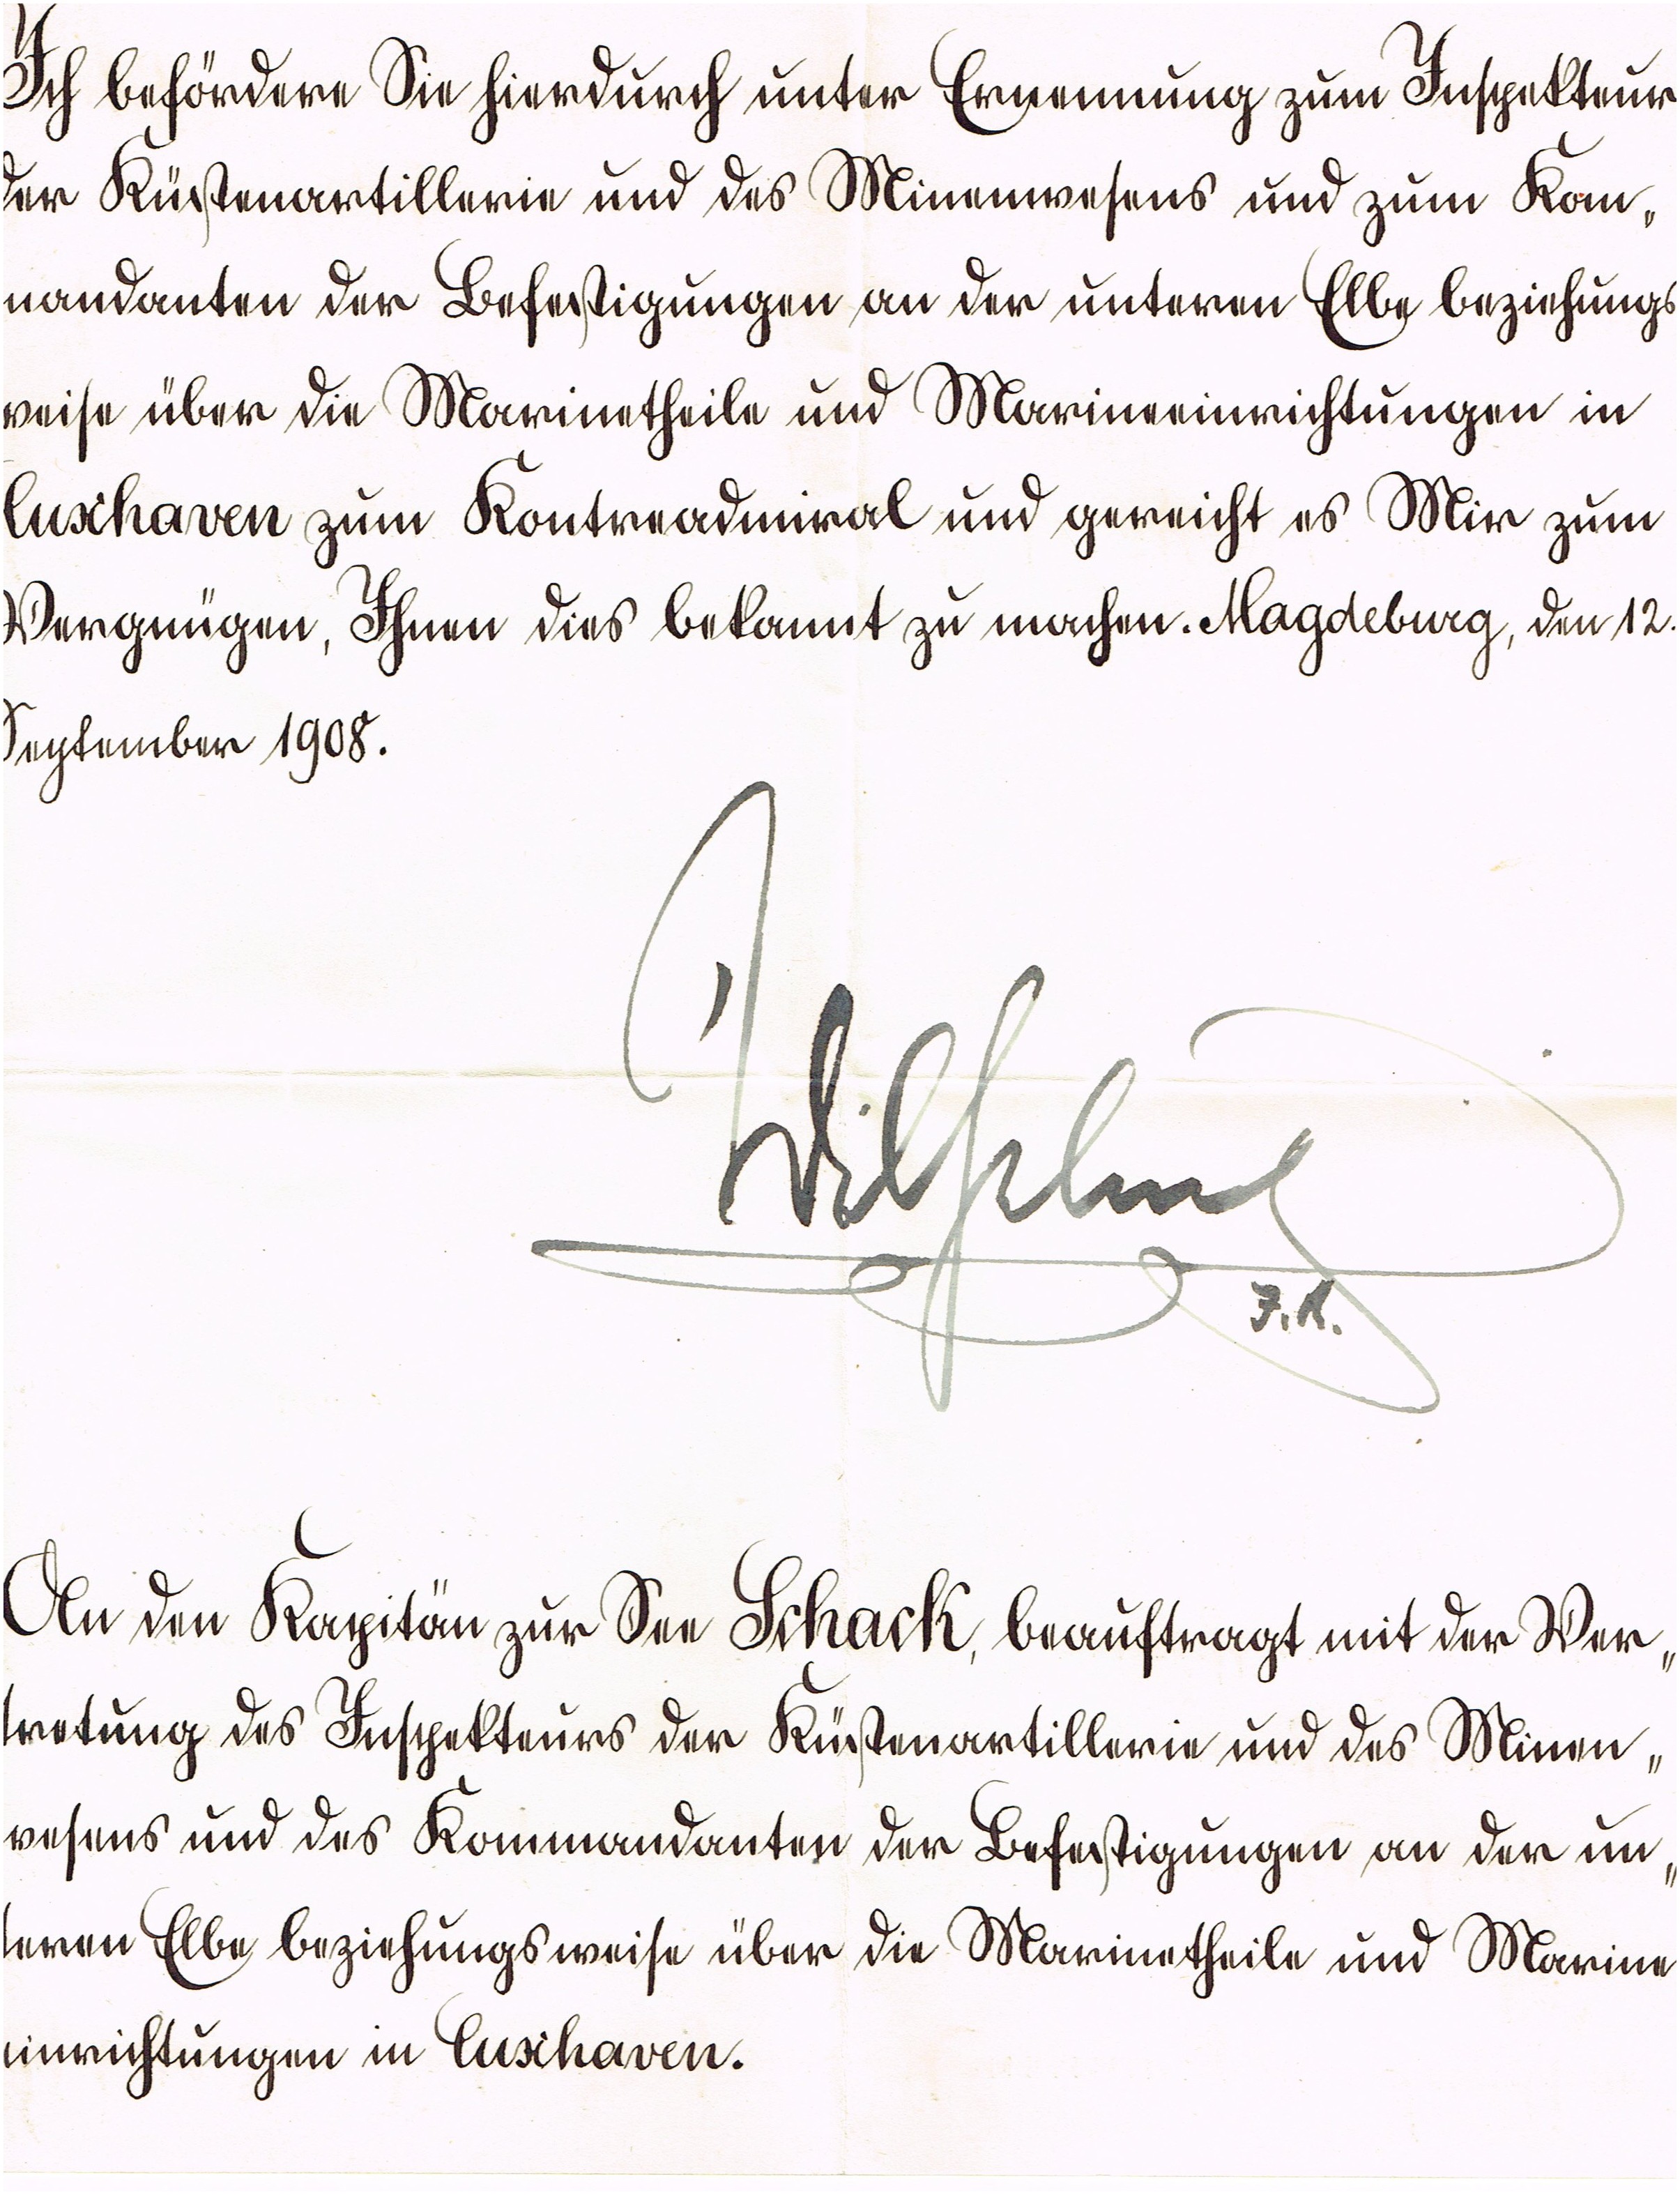 Ich befördere Sie hierdurch unter Ernennung zum Inspekteur
der Küstenartillerie und des Minenwesens und zum Kom„
mandanten der Befestigungen an der unteren Elbe beziehungs
weise über die Marinetheile und Marineeinrichtungen in
Cuxhaven zum Kontreadmiral und gereicht es Mir zum
Vergnügen, Ihnen dies bekannt zu machen. Magdeburg, den 12.
September 1908.
Wilhelm
I.R.
An den Kapitän zur See Schack, beauftragt mit der Ver„
tretung des Inspekteurs der Küstenartillerie und des Minen„
wesens und des Kommandanten der Befestigungen an der un„
teren Elbe beziehungsweise über die Marinetheile und Marine
einrichtungen in Cuxhaven.